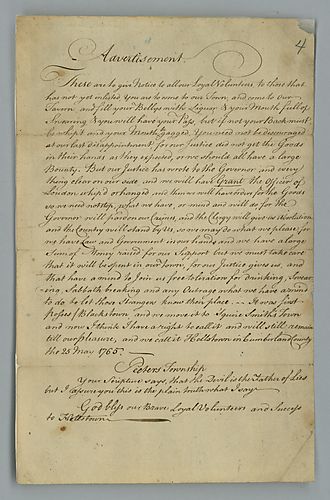 4
Advertisement
These are to give Notice to all our Loyal Volunteers, to those that
has not yet enlisted, you are to come to our Town, and come to Our
Tavern and fill your Bellys with Liquor & your Mouth full of
Swearing & you will have your Pass, but if not your Back must
be whipt and your Mouth gagged, You need not be discouraged
at our last disappointment, for our Justice did not get the Goods
in their hands as they expected, or we should all have a large
Bounty. But our Justice has wrote to the Governor, and every
thing clear on our side and we will have Grant the Officer of
Loudon whip'd or hanged, and then we will have Orders for the Goods
so we need not stop, what we have a mind and will do for the
Governor will pardon our Crimes, and the Clergy will give us Absolution
and the Country will stand by Us, so we may do what we please, for
we have Law and Government in our hands and we have a large
Sum of Money raised for our Support but we must take care
that it will be spent in our Town, for our Justice gives us, and
that have a mind to Join us free toleration for drinking, Swear-
ing, Sabbath breaking and any Outrage what we have a mind
to do to let those Strangers know their place. It was first
Blackstown, and we move it to Squire Smiths Town
and now I think I have a right to call it and will still remain
till our pleasure, and we call it Hellstown in Cumberland County
the 25 May 1765.
Peeters Township
Your Scripture says, that the Devil is the Father of Lies
but I assure you this is the plain truth what I say
God bless our Brave Loyal Volunteers and Success
to Hellstown